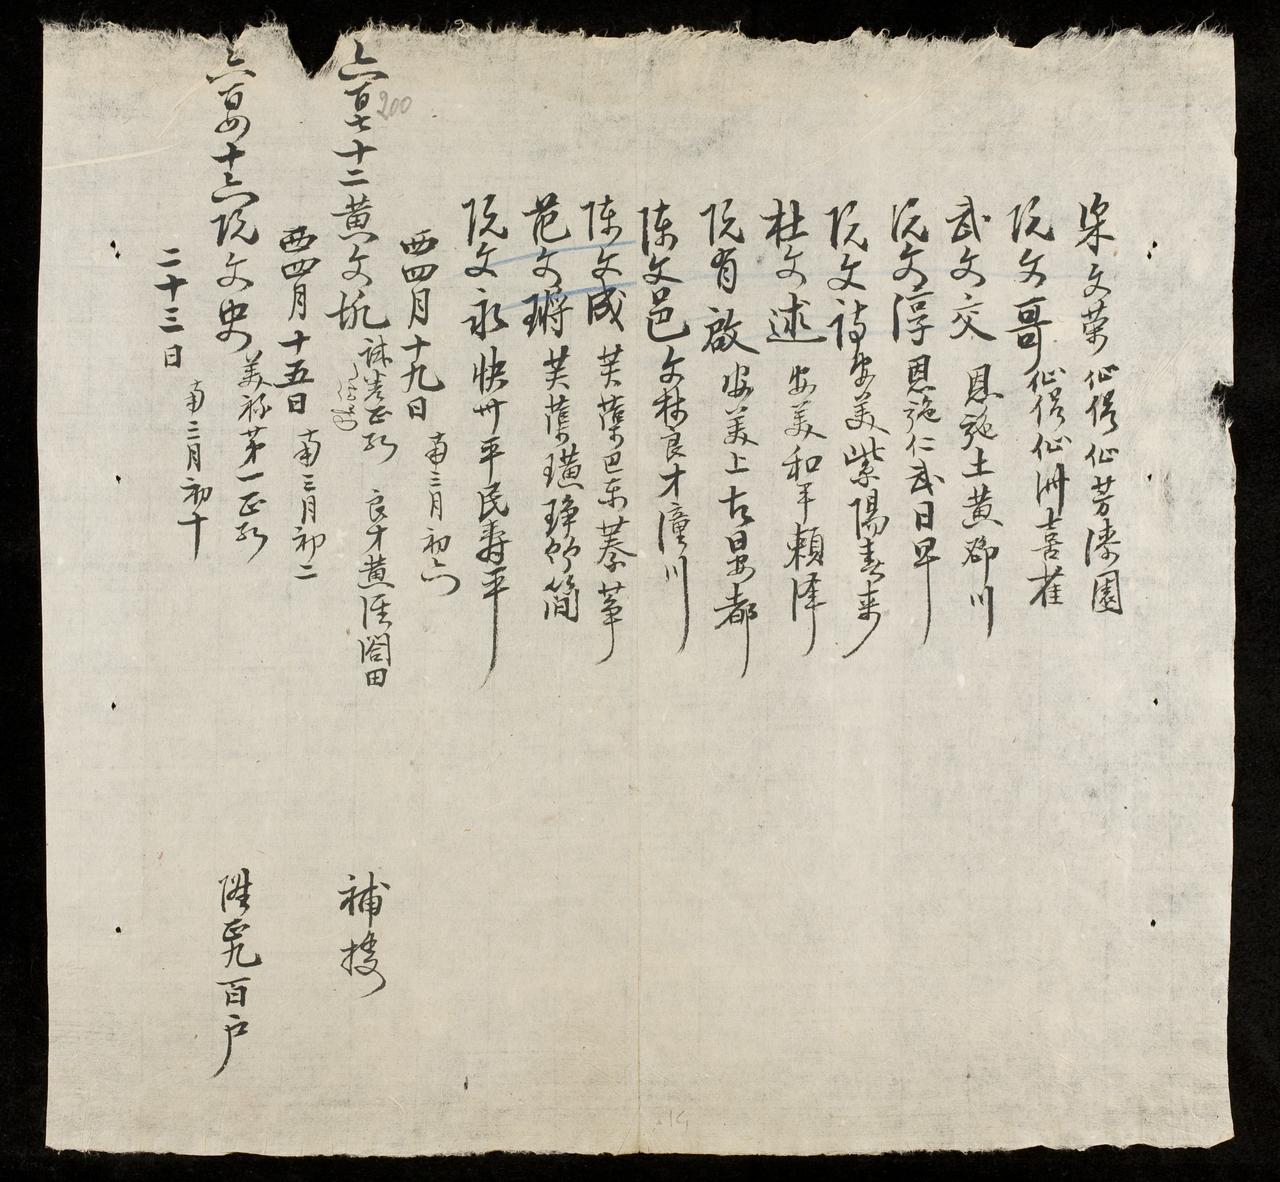 梁文荣仙侶仙芳漆園
阮文哥仙侶仙洲喜雀
武文交恩施土黄𨛦川
阮文淳恩施仁武日早
阮文詩安美紫陽春来
杜文述安美和平賴泽
阮有啟安美上古晏都
陳文邑文林良才潼川
陳文成芙蕖巴東
范文琈芙蕖璜琤简
阮文永快卅平民壽平
西四月十九日南三月初六
六百七十二黄文坑 良才黄涇閣田 補接
西四月十五日南三月初二
六百四十六阮文史美祿第一正 陞正九百户
二十三日南三月初十
200